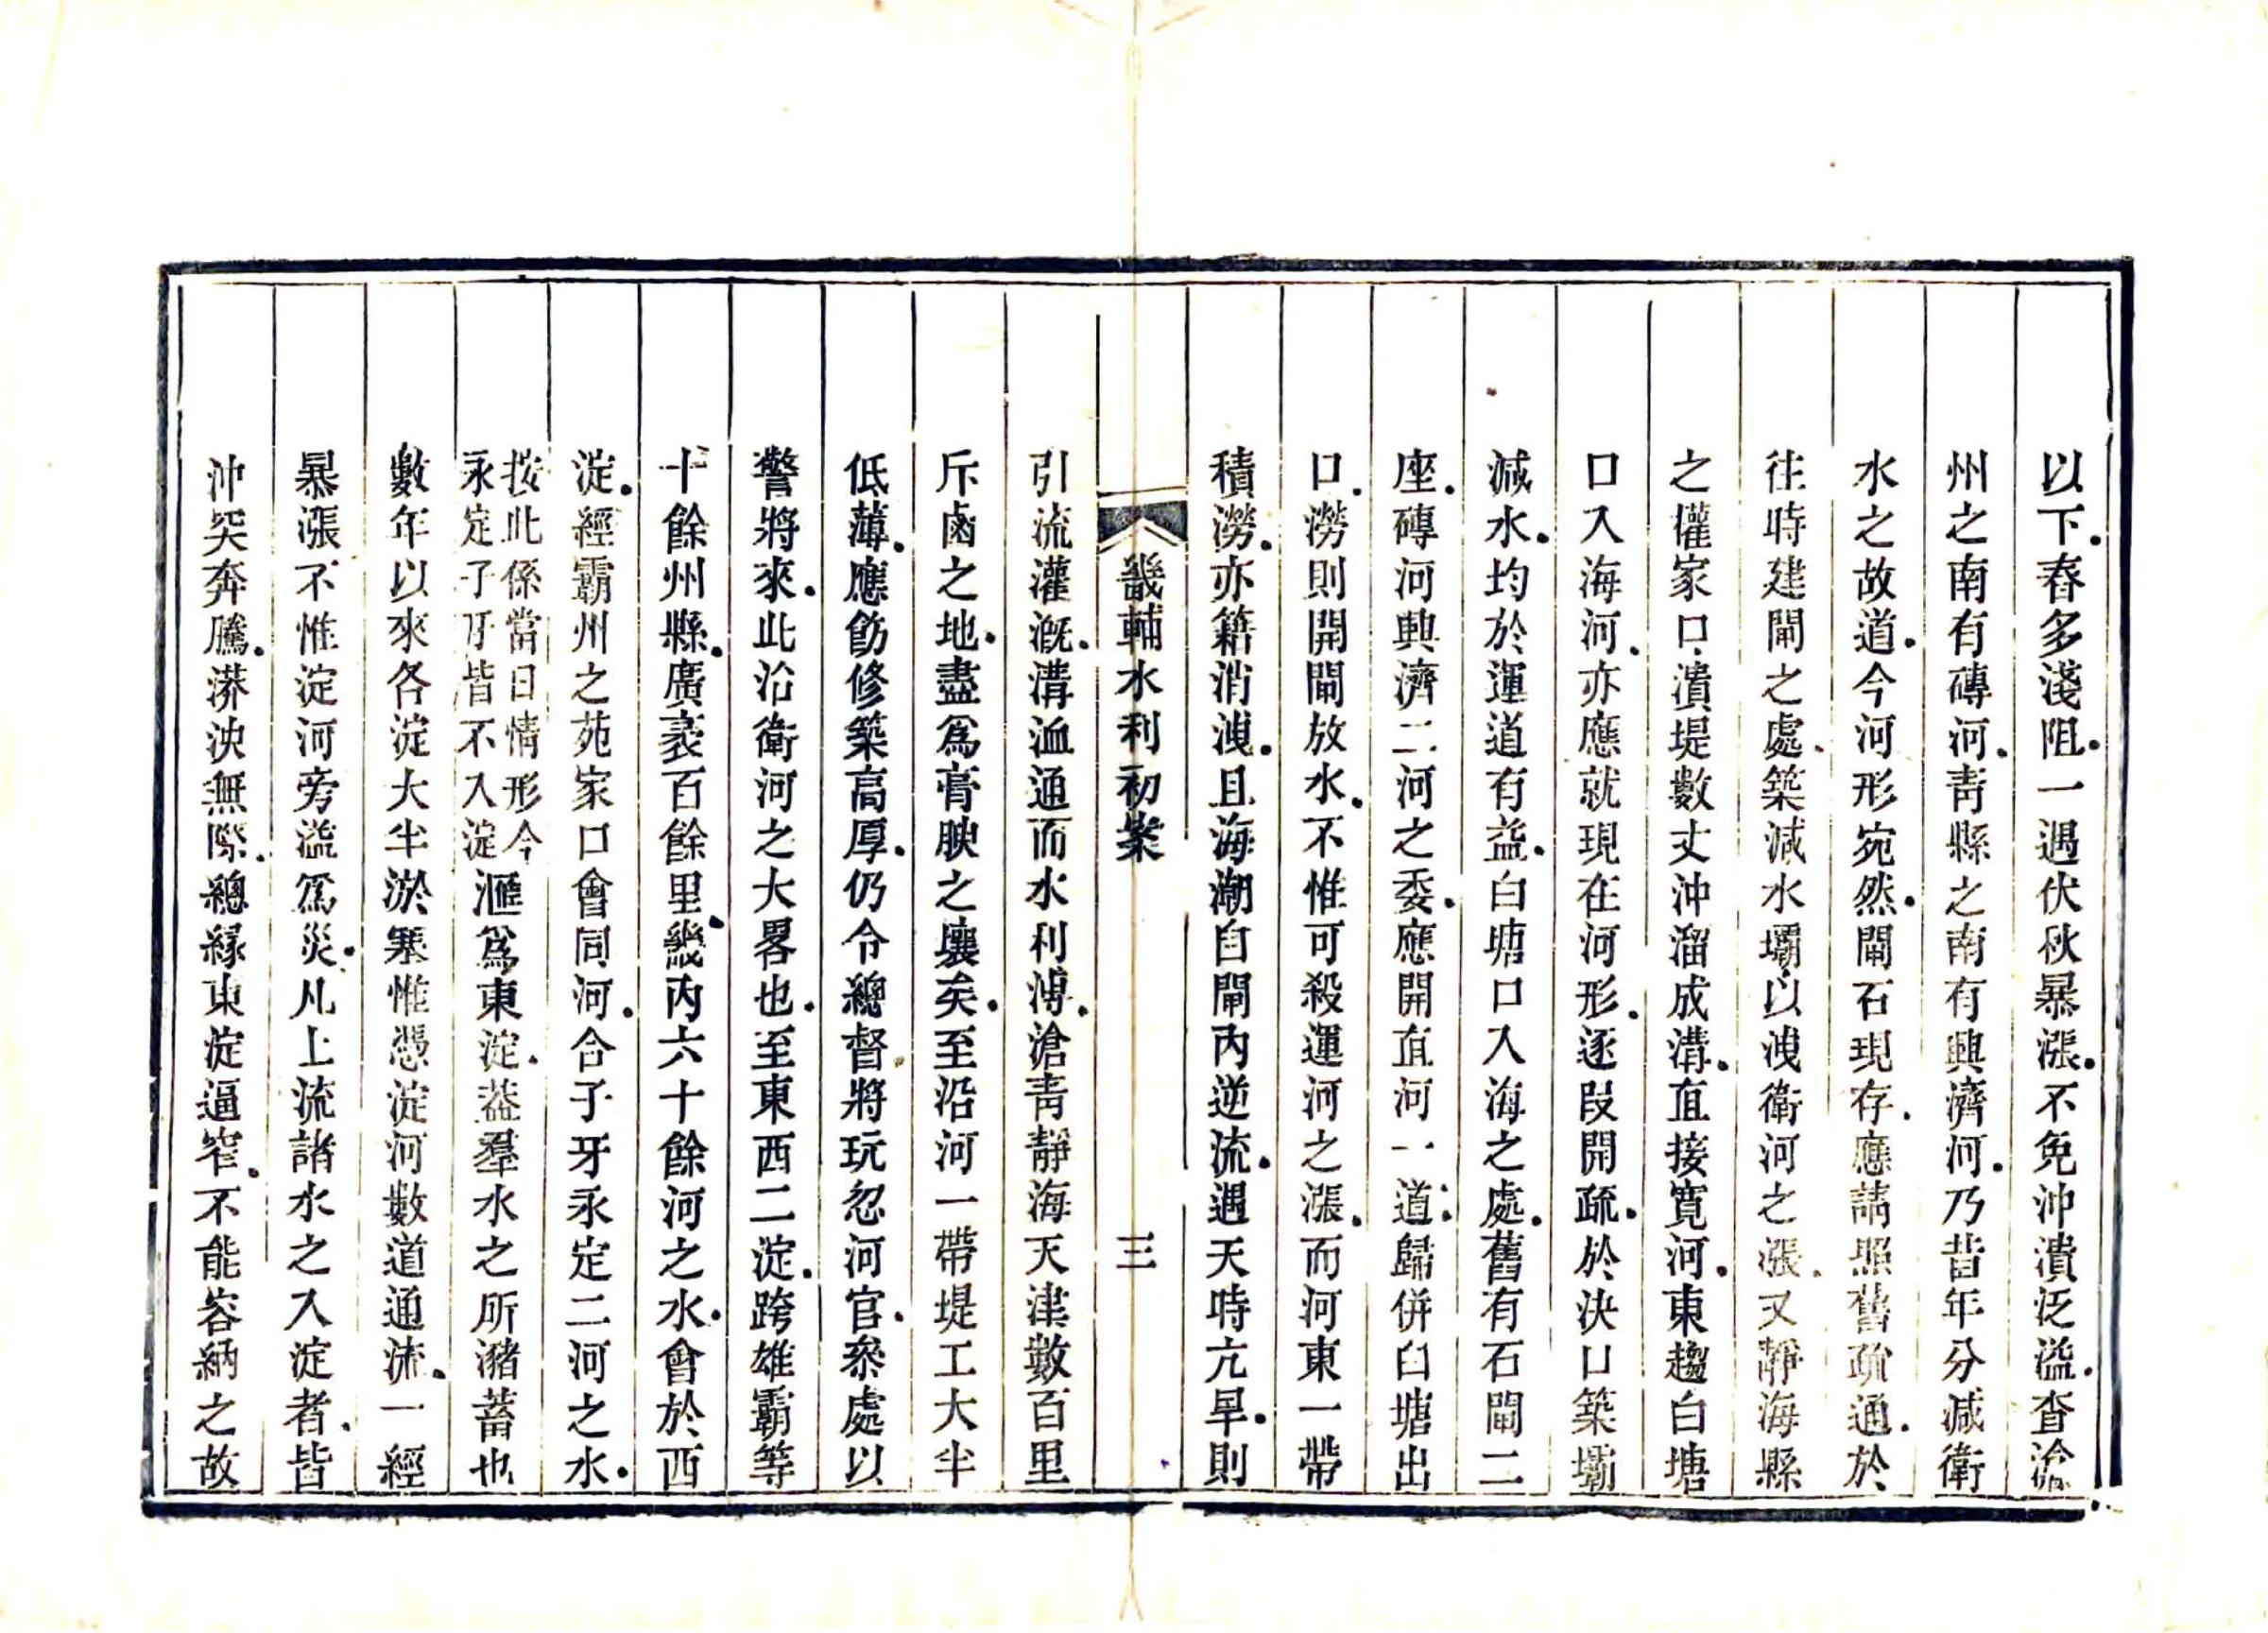 以下.春多淺阻.一遇伏秋暴漲.不免沖潰泛溢.查滄
州之南有磚河.青縣之南有興濟河.乃昔年分減衛
水之故道.今河形宛然.閘石現存.應請照舊疏通.於
往時建閘之處.築減水壩.以洩衛河之漲.又靜海縣
之權家口.潰堤數丈沖溜成溝.直接寛河.東趨白塘
口入海河.亦應就現在河形.逐段開疏.於決口築壩
減水.均於運道有益.白塘口入海之處.舊有石閘二
座.磚河興濟二河之委.應開直河一道.歸併白塘出
口.澇則開閘放水.不惟可殺運河之漲.而河東一帶
積澇.亦籍消洩.且海潮自閘內逆流.遇天時亢旱.則
畿輔水利初案 三
引流灌漑.溝洫通而水利溥.滄青靜海天津數百里
斥鹵之地.盡爲膏腴之壤矣.至沿河一帶堤工大半
低薄.應飭修築高厚.仍令總督.將玩忽河官.叅處以
警將來.此沿衛河之大畧也.至東西二淀.跨雄霸等
十餘州縣.廣袤百餘里.畿內六十餘河之水.會於西
淀.經霸州之苑家口會同河.合子牙永定二河之水.
按此係當日情形今
永定子牙皆不入淀
滙爲東淀.葢羣水之所瀦蓄也
數年以來各淀大半淤塞惟憑淀河數道通流.一經
暴漲不惟淀河旁溢爲災.凡上流諸水之入淀者.皆
沖突奔騰.漭泱無際.總緣東淀逼窄.不能容納之故